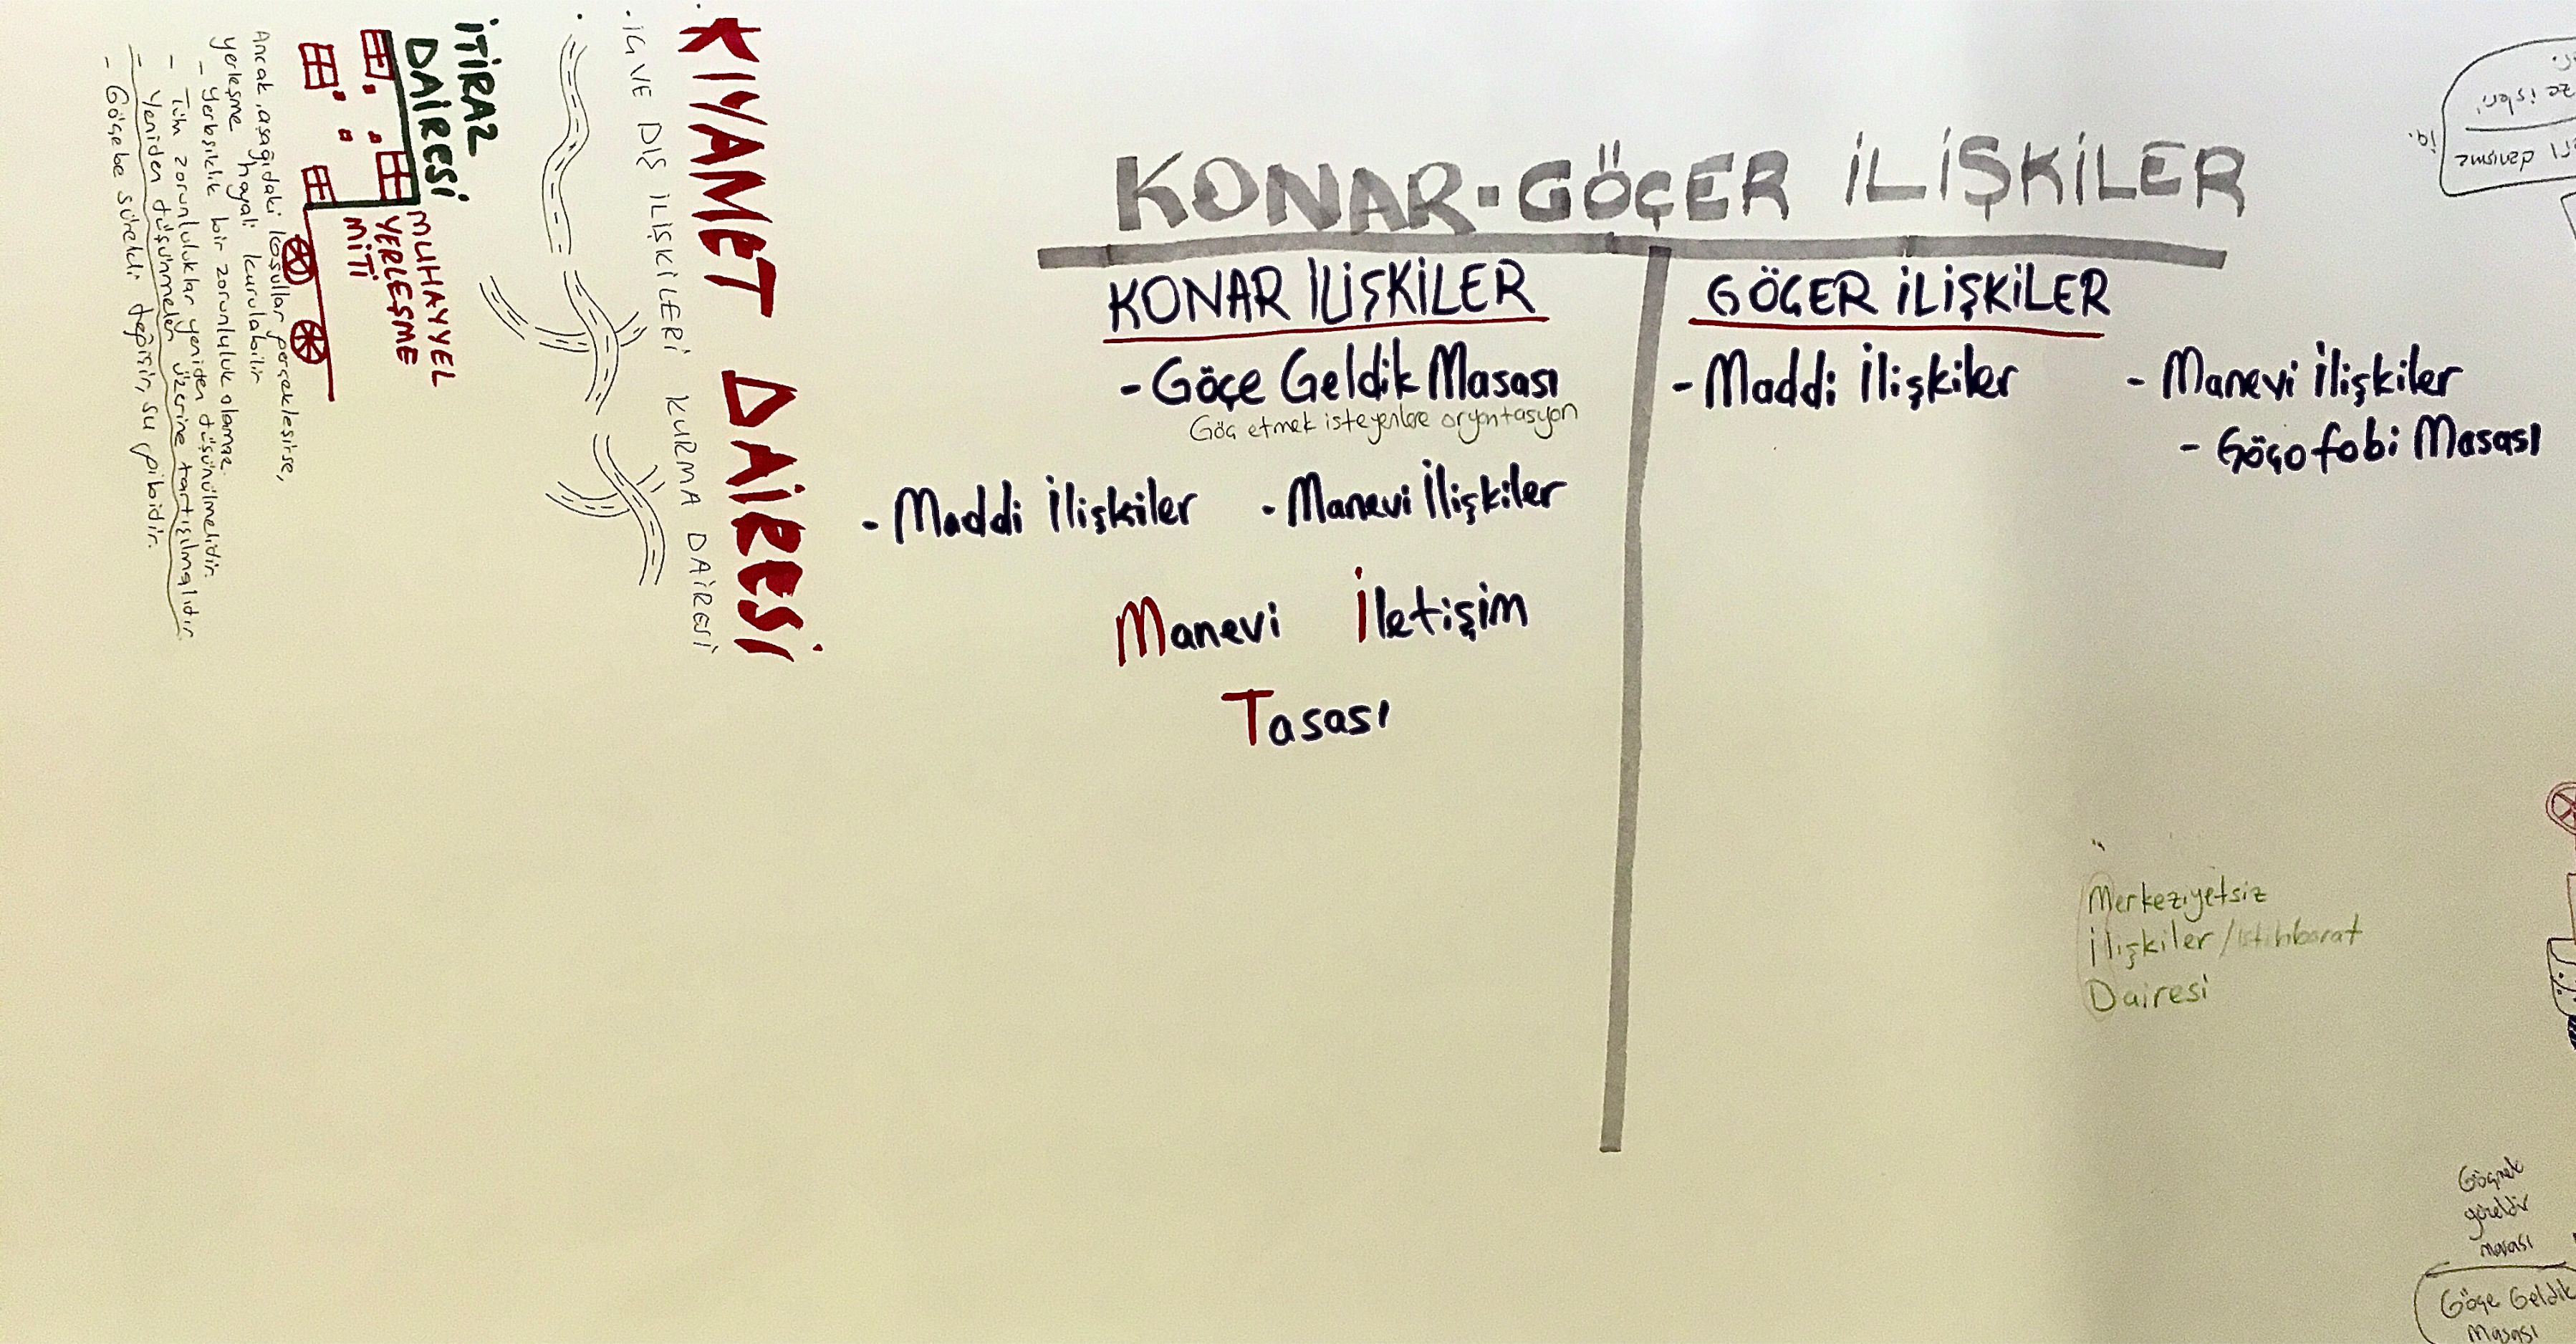 KONAR-GÖÇER İLİŞKİLER
KONAR İLİŞKİLER
- Göçe Geldik Masası
Göç etmek isteyenlere oryantasyon
- Maddi İlişkiler
- Manevi İlişkiler
Manevi İletişim
Tasası
GÖÇER İLİŞKİLER
- Maddi İlişkiler
- Manevi İlişkiler
- Göçofobi Masası
KIYAMET DAİRESİ
İÇ VE DIŞ İLİŞKİLERİ KURMA DAİRESİ
İTİRAZ
DAİRESİ
MUHAYYEL
YERLEŞME
MİTİ
Ancak aşağıdaki koşullar gerçekleşirse,
yerleşme hayali kurulabilir
- Yerleşiklik bir zorunluluk olamaz.
- Tüm zorunluluklar yeniden düşünülmelidir.
- Yeniden düşünmeler üzerine tartışılmalıdır
- Göçebe sürekli değişir, su gibidir.
Merkeziyetsiz
İlişkiler/istihbarat
Dairesi
Göçmek
güzeldir
masası
Göçe Geldik
Masası